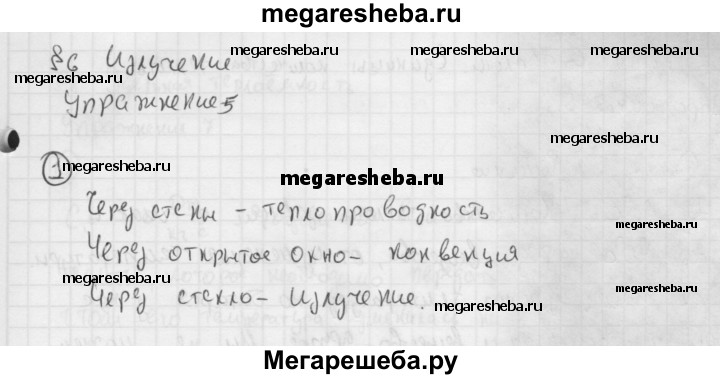 megaresheba.ru
§6 Излучение
Упражнение 5
1
Через стены - теплопроводность
Через открытое окно- конвекция
Через стекло- Излучение.
megaresheba.ru
megaresheba.ru
megaresheba.ru
megaresheba.ru
megaresheba.ru
megaresheba.ru
megaresheba.ru
megaresheba.ru
megaresheba.ru
megaresheba.ru
megaresheba.ru
Мегарешеба.ру